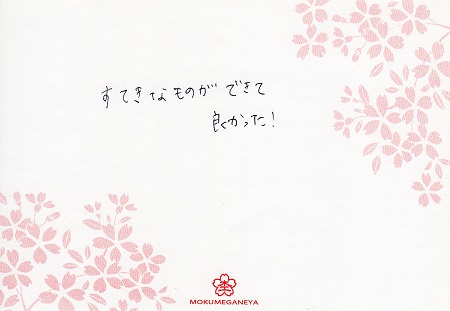 すてきなものができて
良かった!
MOKUMEGANEYA